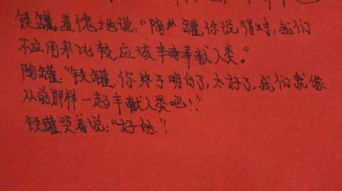 铁罐羞愧地说:“陶 罐你说得对,我们
不应用来比较,应该 奉献人类。”
陶罐:“铁罐,你终于明白了,太好了,我们就像
从前那样一起奉献人类吧!”
铁罐笑着说:“好的。”